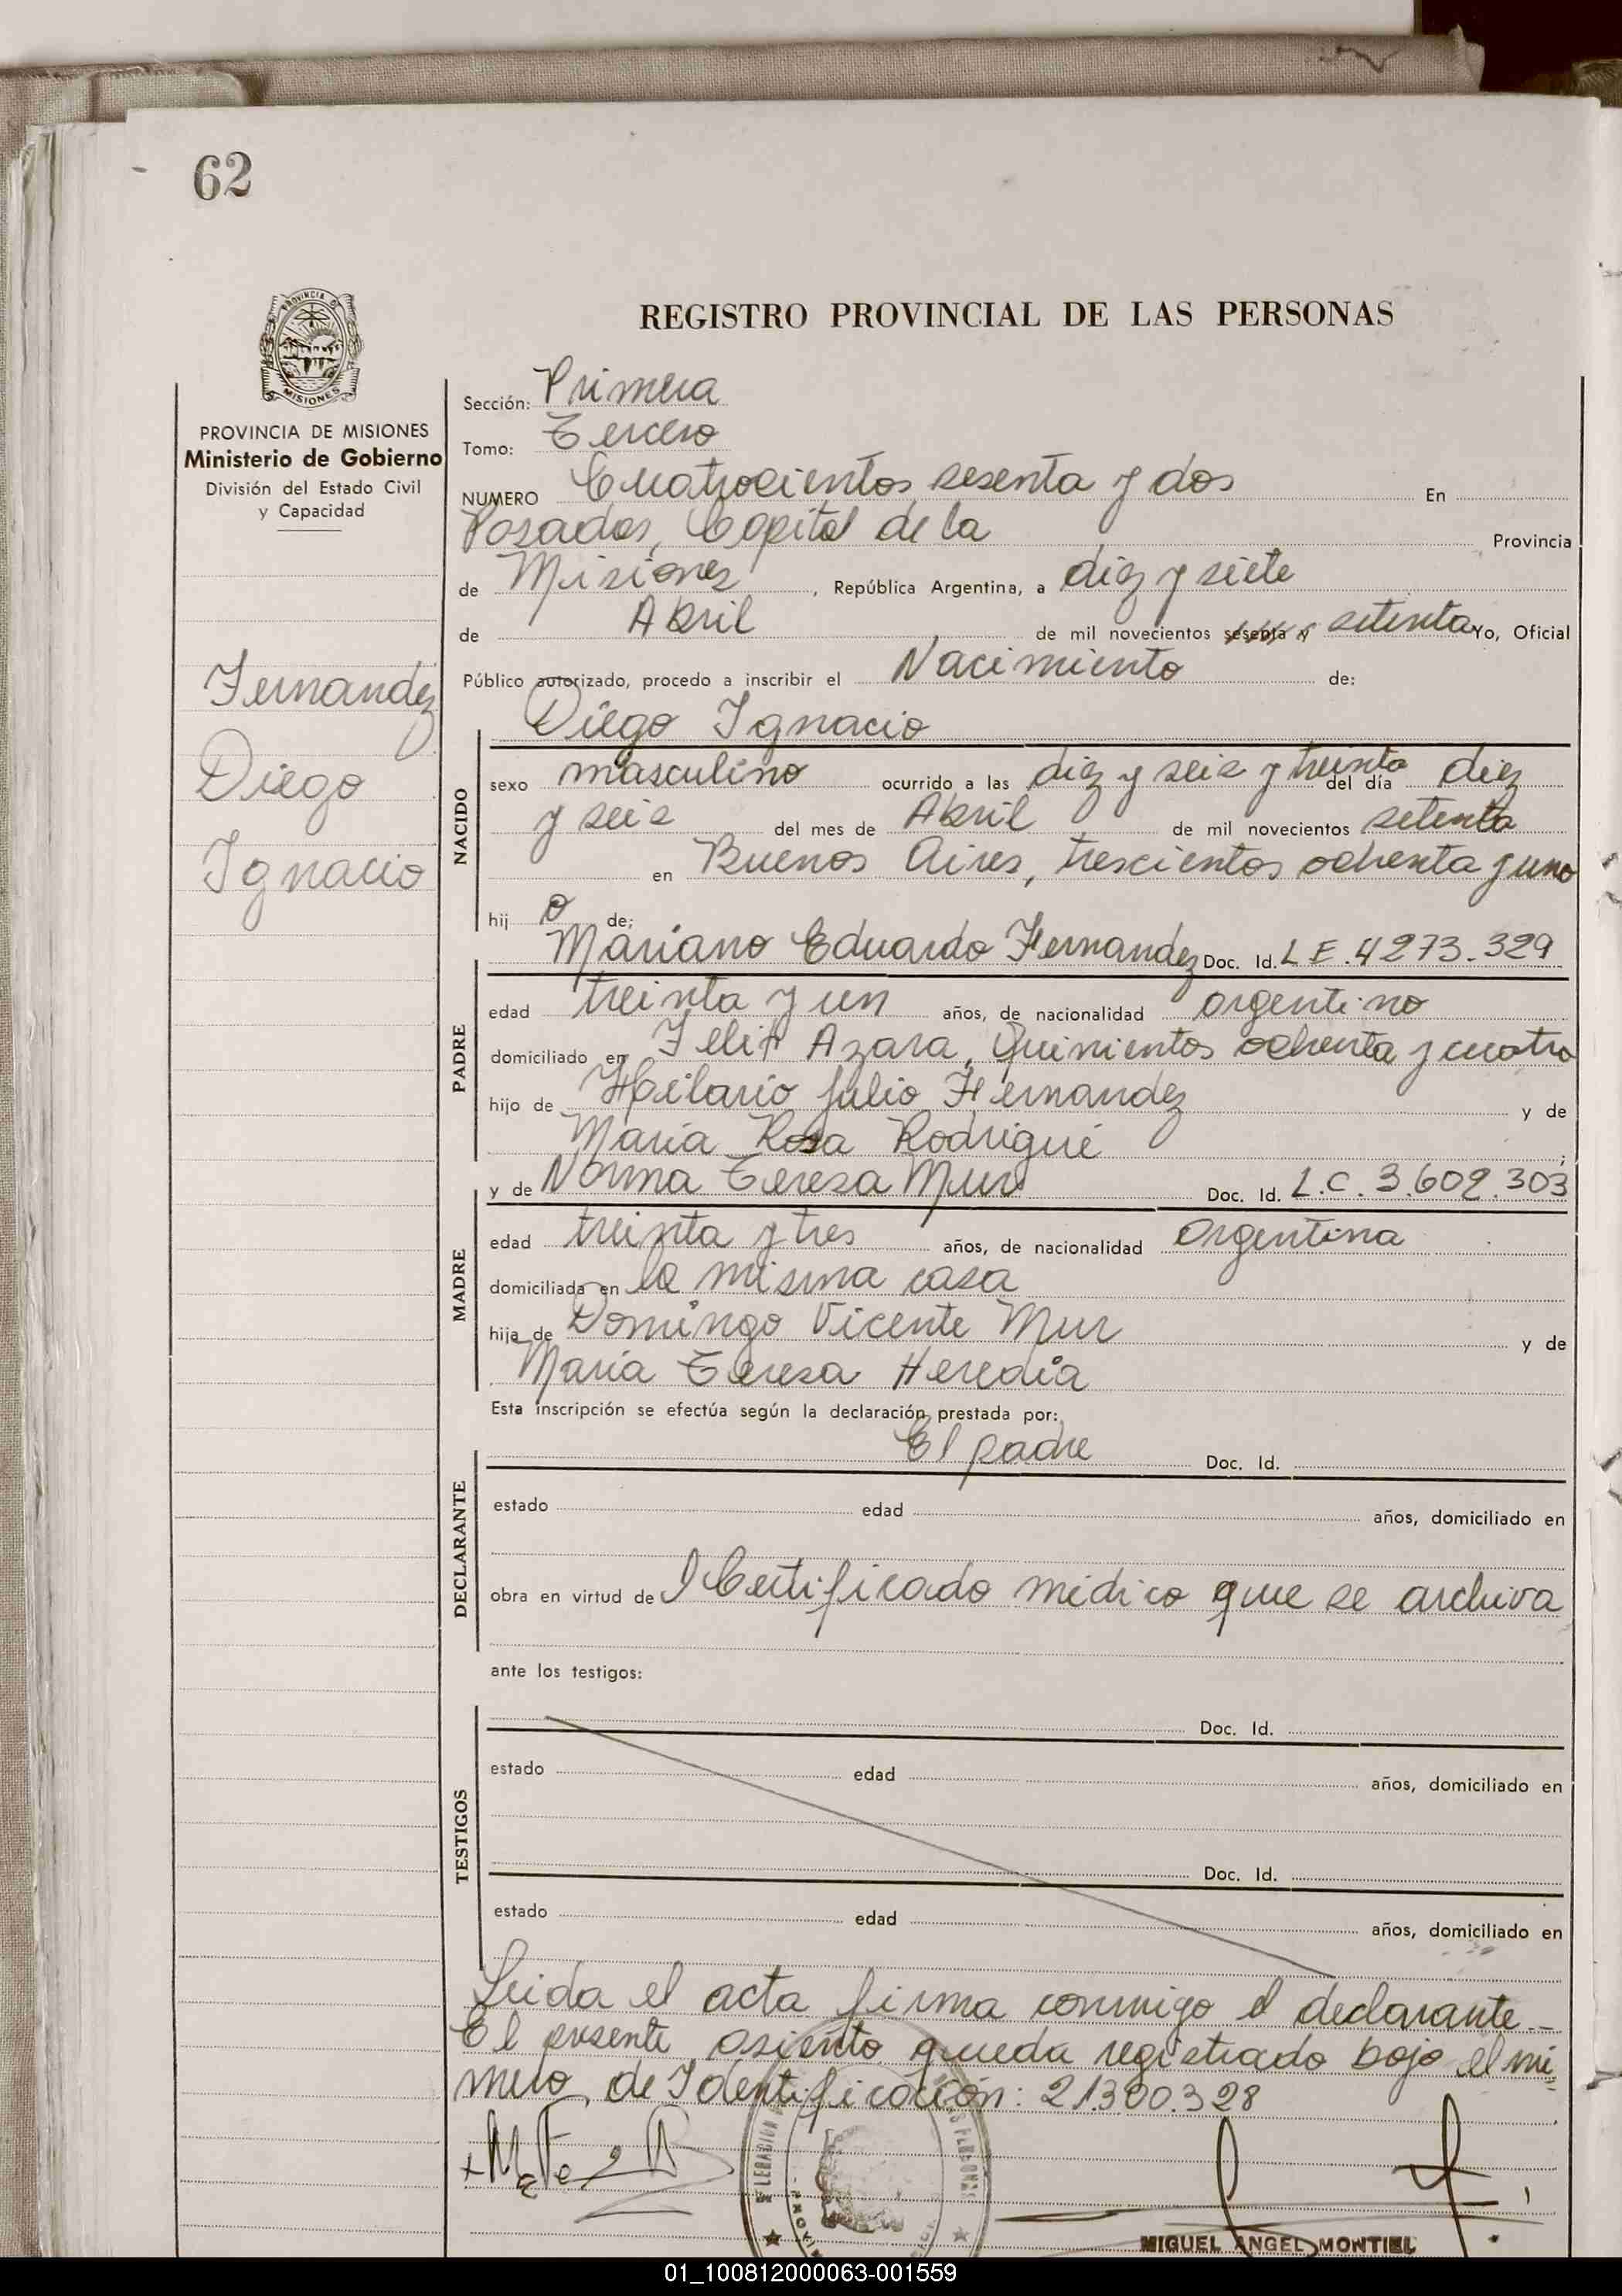 62
REGISTRO PROVINCIAL DE LAS PERSONAS
PROVINCIA DE MISIONES
Ministerio de Gobierno
División del Estado Civil
y Capacidad
Fernandez
Diego
Ignacio
Sección: Primera
Tomo: Tercero
NUMERO Cuatrocientos sesenta y dos En
Posadas, Capital de la Provincia
de Misiones, República Argentina, a diez y siete
de Abril de mil novecientos sesenta y setenta Yo, Oficial
Público autorizado, procedo a inscribir el Nacimiento de:
Diego Ignacio
NACIDO
sexo masculino ocurrido a las diez y seis y treinta del día diez
y seis del mes de Abril de mil novecientos setenta
en Buenos Aires, trescientos ochenta y uno
hijo de:
Mariano Eduardo Fernandez Doc. Id. L E. 4273.329
PADRE
edad treinta y un años, de nacionalidad argentino
domiciliado en Felix Azara, Quinientos ochenta y cuatro
hijo de Hilario Julio Fernandez y de
Maria Rosa Rodrigué ;
y de Norma Teresa Mur Doc. Id. L.C. 3.602.303
MADRE
edad treinta y tres años, de nacionalidad argentina
domiciliada en la misma casa
hija de Domingo Vicente Mur y de
Maria Teresa Heredia
Esta inscripción se efectúa según la declaración prestada por:
DECLARANTE
El padre Doc. Id.
estado edad años, domiciliado en
obra en virtud de l Certificado médico que se archiva
ante los testigos:
TESTIGOS
Doc. Id.
estado edad años, domiciliado en
Doc. Id.
estado edad años, domiciliado en
Leida el acta firma conmigo el declarante.-
El presente asiento queda registrado bajo el nú
mero de Identificación: 21.300.328
MIGUEL ANGEL MONTIEL
01_100812000063-001559